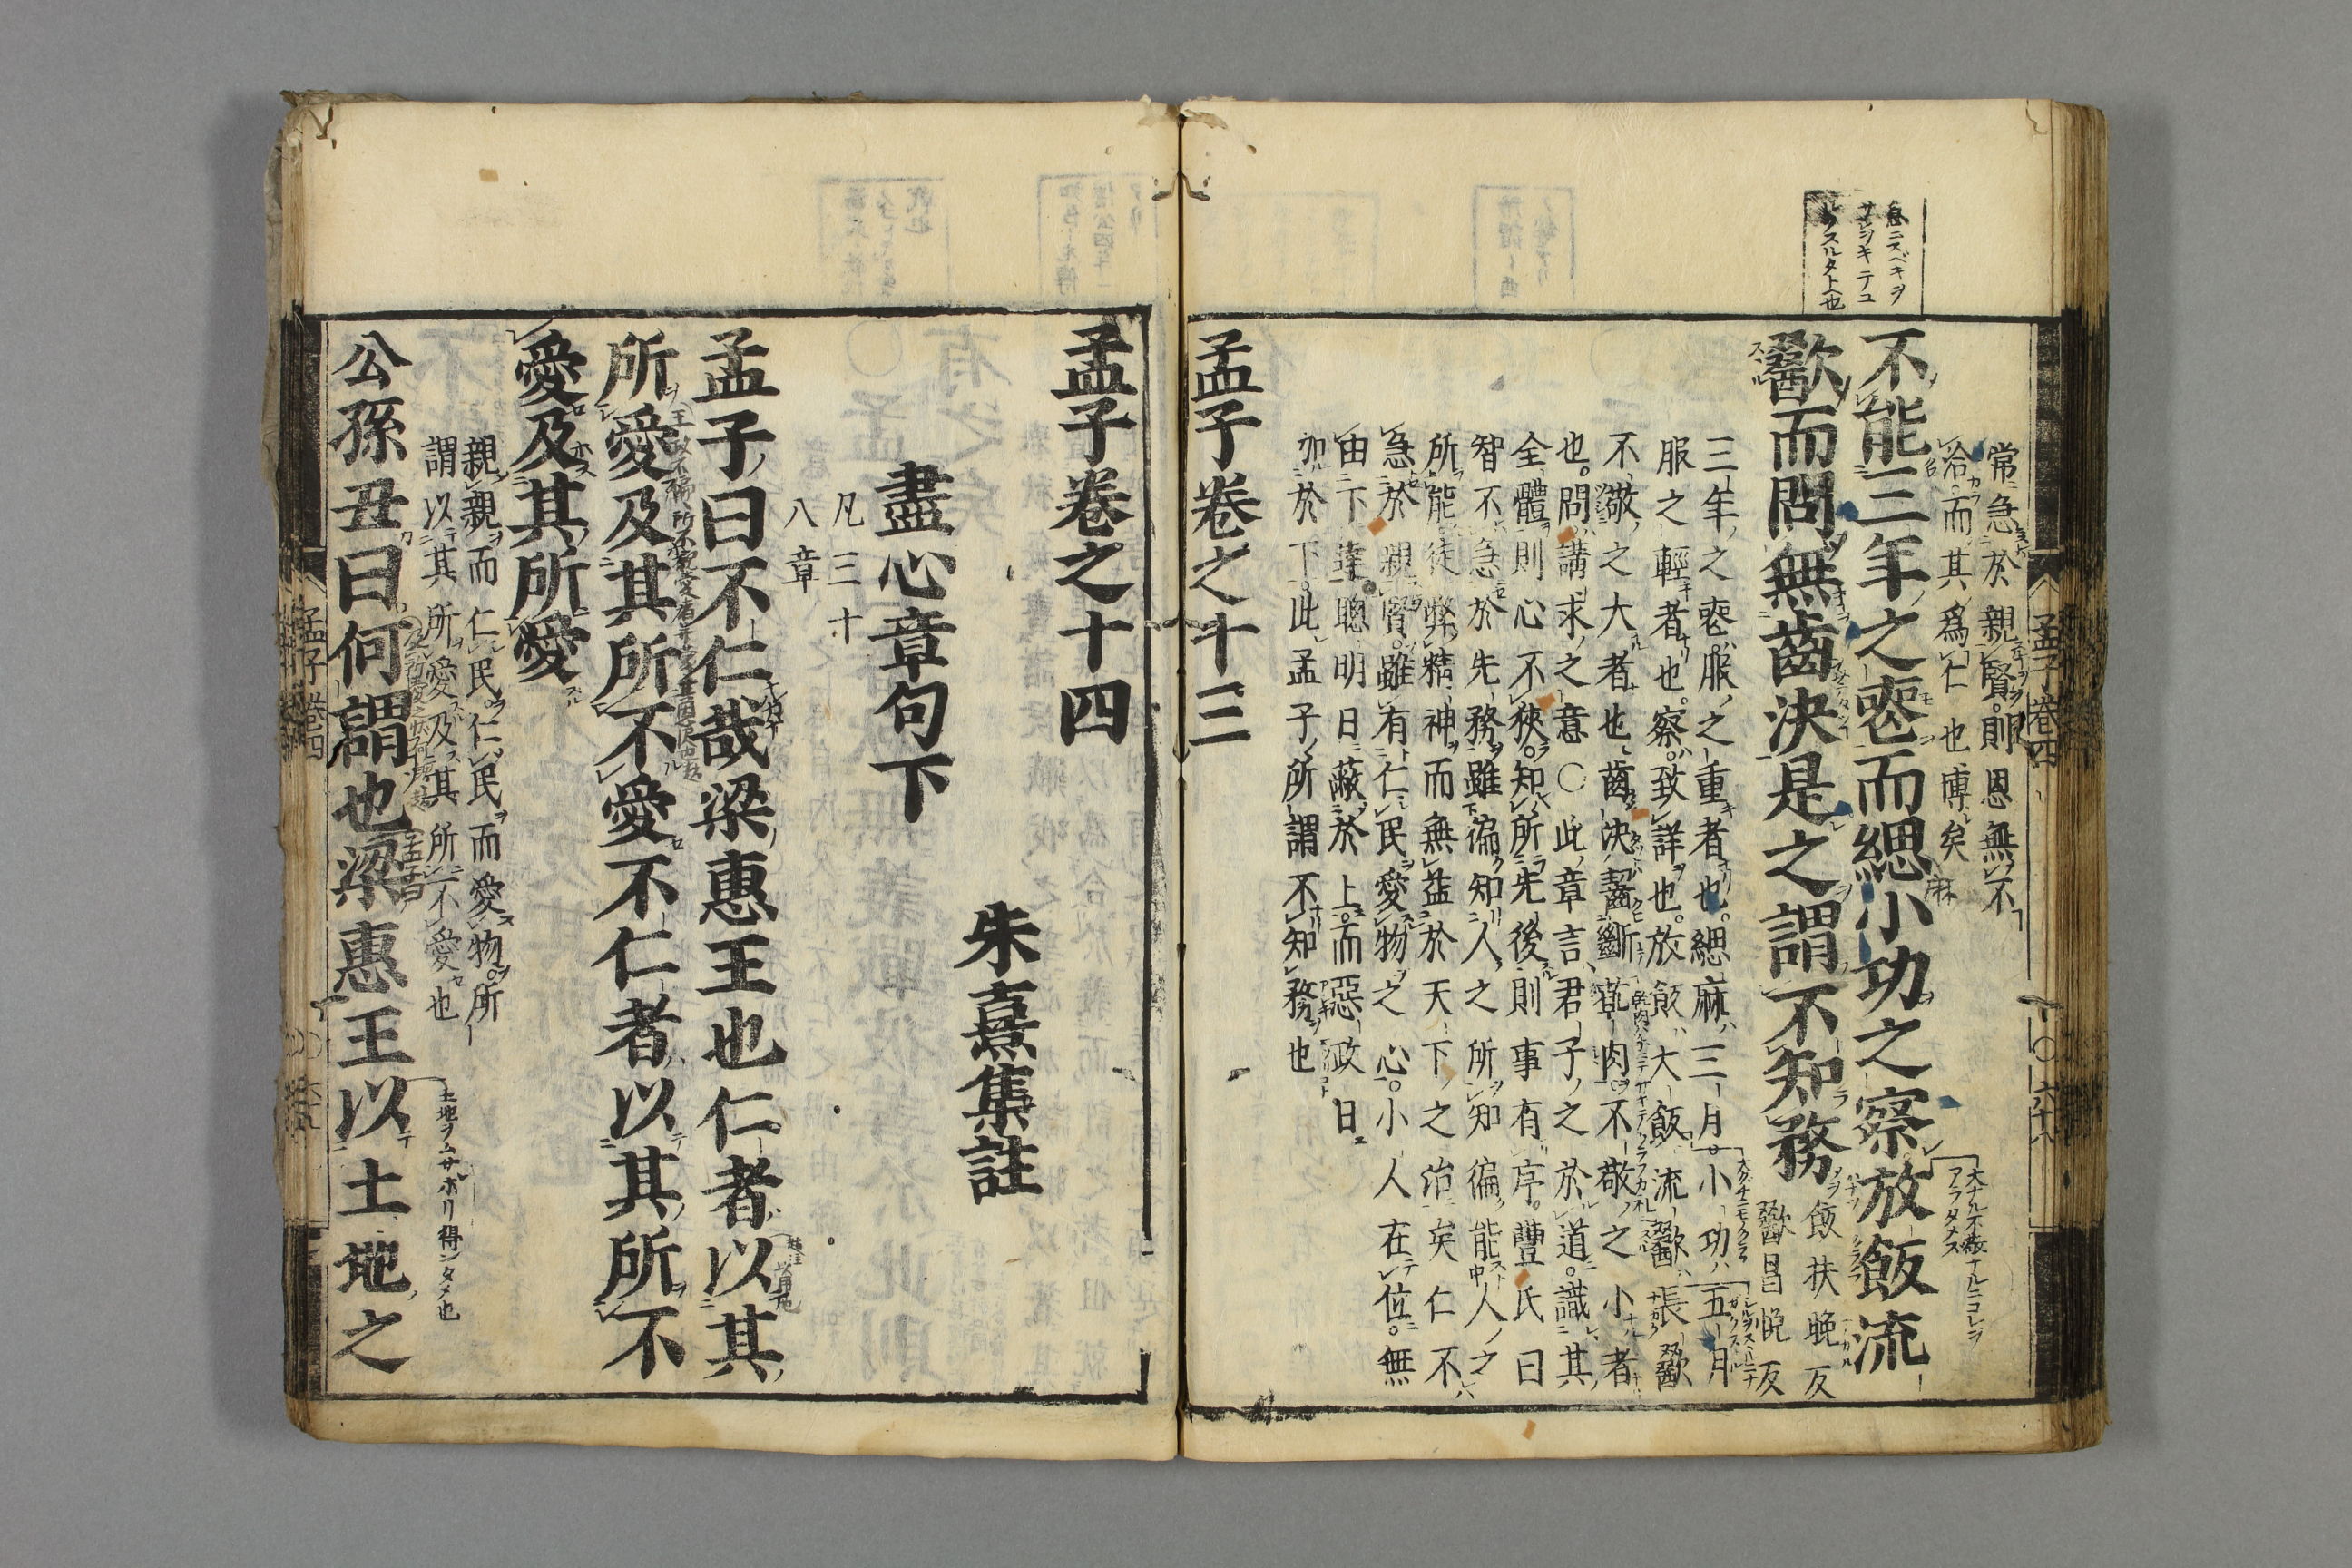 常急於親賢則恩無不
洽而其爲仁也博矣
不能三年之喪而緦小功之察放飯流
歠而問無齒決是之謂不知務
飯扶晚反
歠昌悅反
三年之喪服之重者也緦麻三月小功五月
服之輕者也察致詳也放飯大飯流歠長歠
不敬之大者也齒決齧斷乾肉不敬之小者
也問講求之意○此章言君子之於道識其
全體則心不狹知所先後則事有序豐氏曰
智不急於先務雖徧知人之所知徧能人之
所能徒弊精神而無益於天下之治矣仁不
急於親賢雖有仁民愛物之心小人在位無
由下達聰明日蔽於上而惡政日
加於下此孟子所謂不知務也
孟子卷之十三
孟子卷之十四
朱熹集註
盡心章句下
凡三十
八章
孟子曰不仁哉梁惠王也仁者以其
所愛及其所不愛不仁者以其所不
愛及其所愛
親親而仁民仁民而愛物所
謂以其所愛及其所不愛也
公孫丑曰何謂也梁惠王以土地之